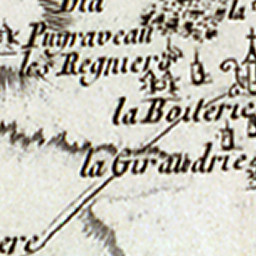 la
Puyraveau
les Regniers
la Boiterie
la Giraudrie
ere